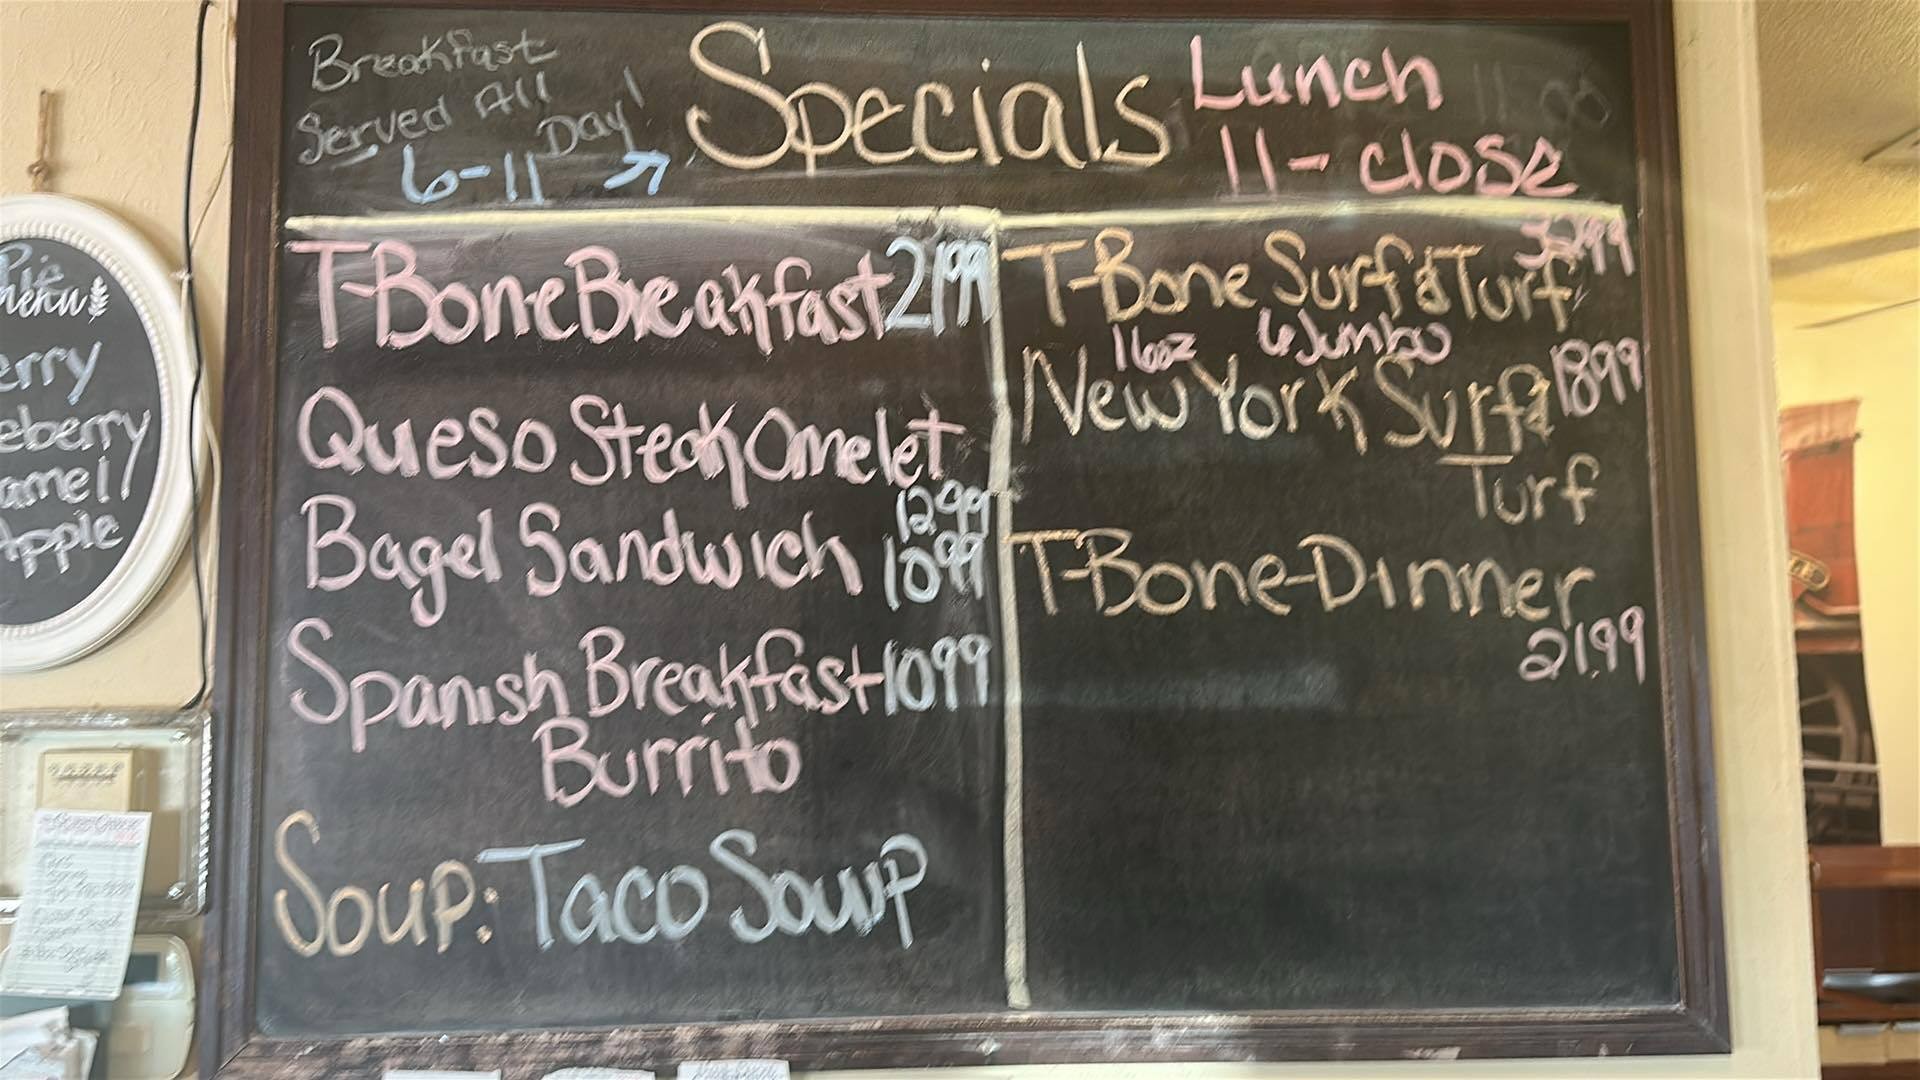 Breakfast
Served All
Day!
6-11
Specials
Lunch
11-close
T-Bone Breakfast 2199
Queso Steak Omelet
1299
Bagel Sandwich 1099
Spanish Breakfast 1099
Burrito
Soup: Taco Souup
3299
T-Bone Surf & Turf
16oz 6 Jumbo
New York Surf & 1899
Turf
T-Bone-Dinner
21.99
Pie
menu
erry
eberry
amel
Apple